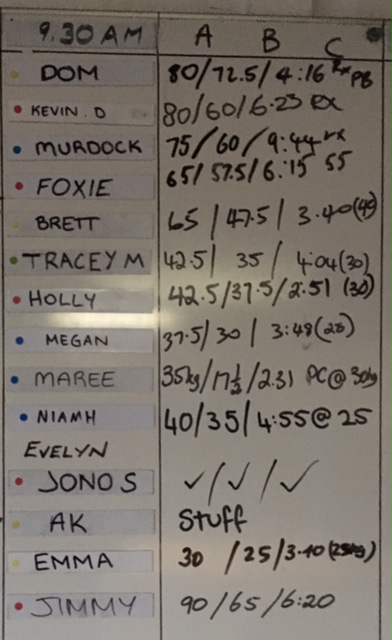 9.30 AM A B C
DOM 80/72.5/4:16 Rx PB
KEVIN. D 80/60/6-23 RX
MURDOCK 75/60/9:44 rx
FOXIE 65/57.5/6:15 55
BRETT 65/47.5/3.40 (40)
TRACEY M 42.5/35/4:04 (30)
HOLLY 42.5/37.5/2:51 (30)
MEGAN 37.5/30/3:48 (25)
MAREE 35kg/17½/2.31 PC @ 30kg
NIAMH 40/35/4:55 @ 25
EVELYN
JONO S ✓/✓/✓
AK Stuff
EMMA 30/25/3.40 (25kg)
JIMMY 90/65/6:20